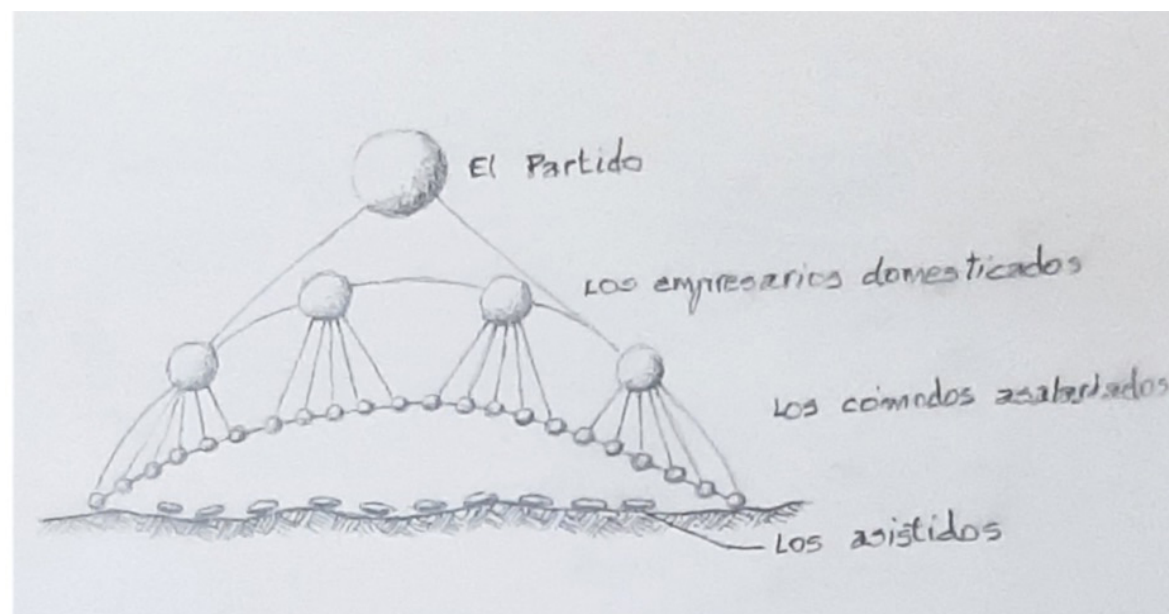 El Partido
Los empresarios domesticados
Los cómodos asalariados
Los asistidos